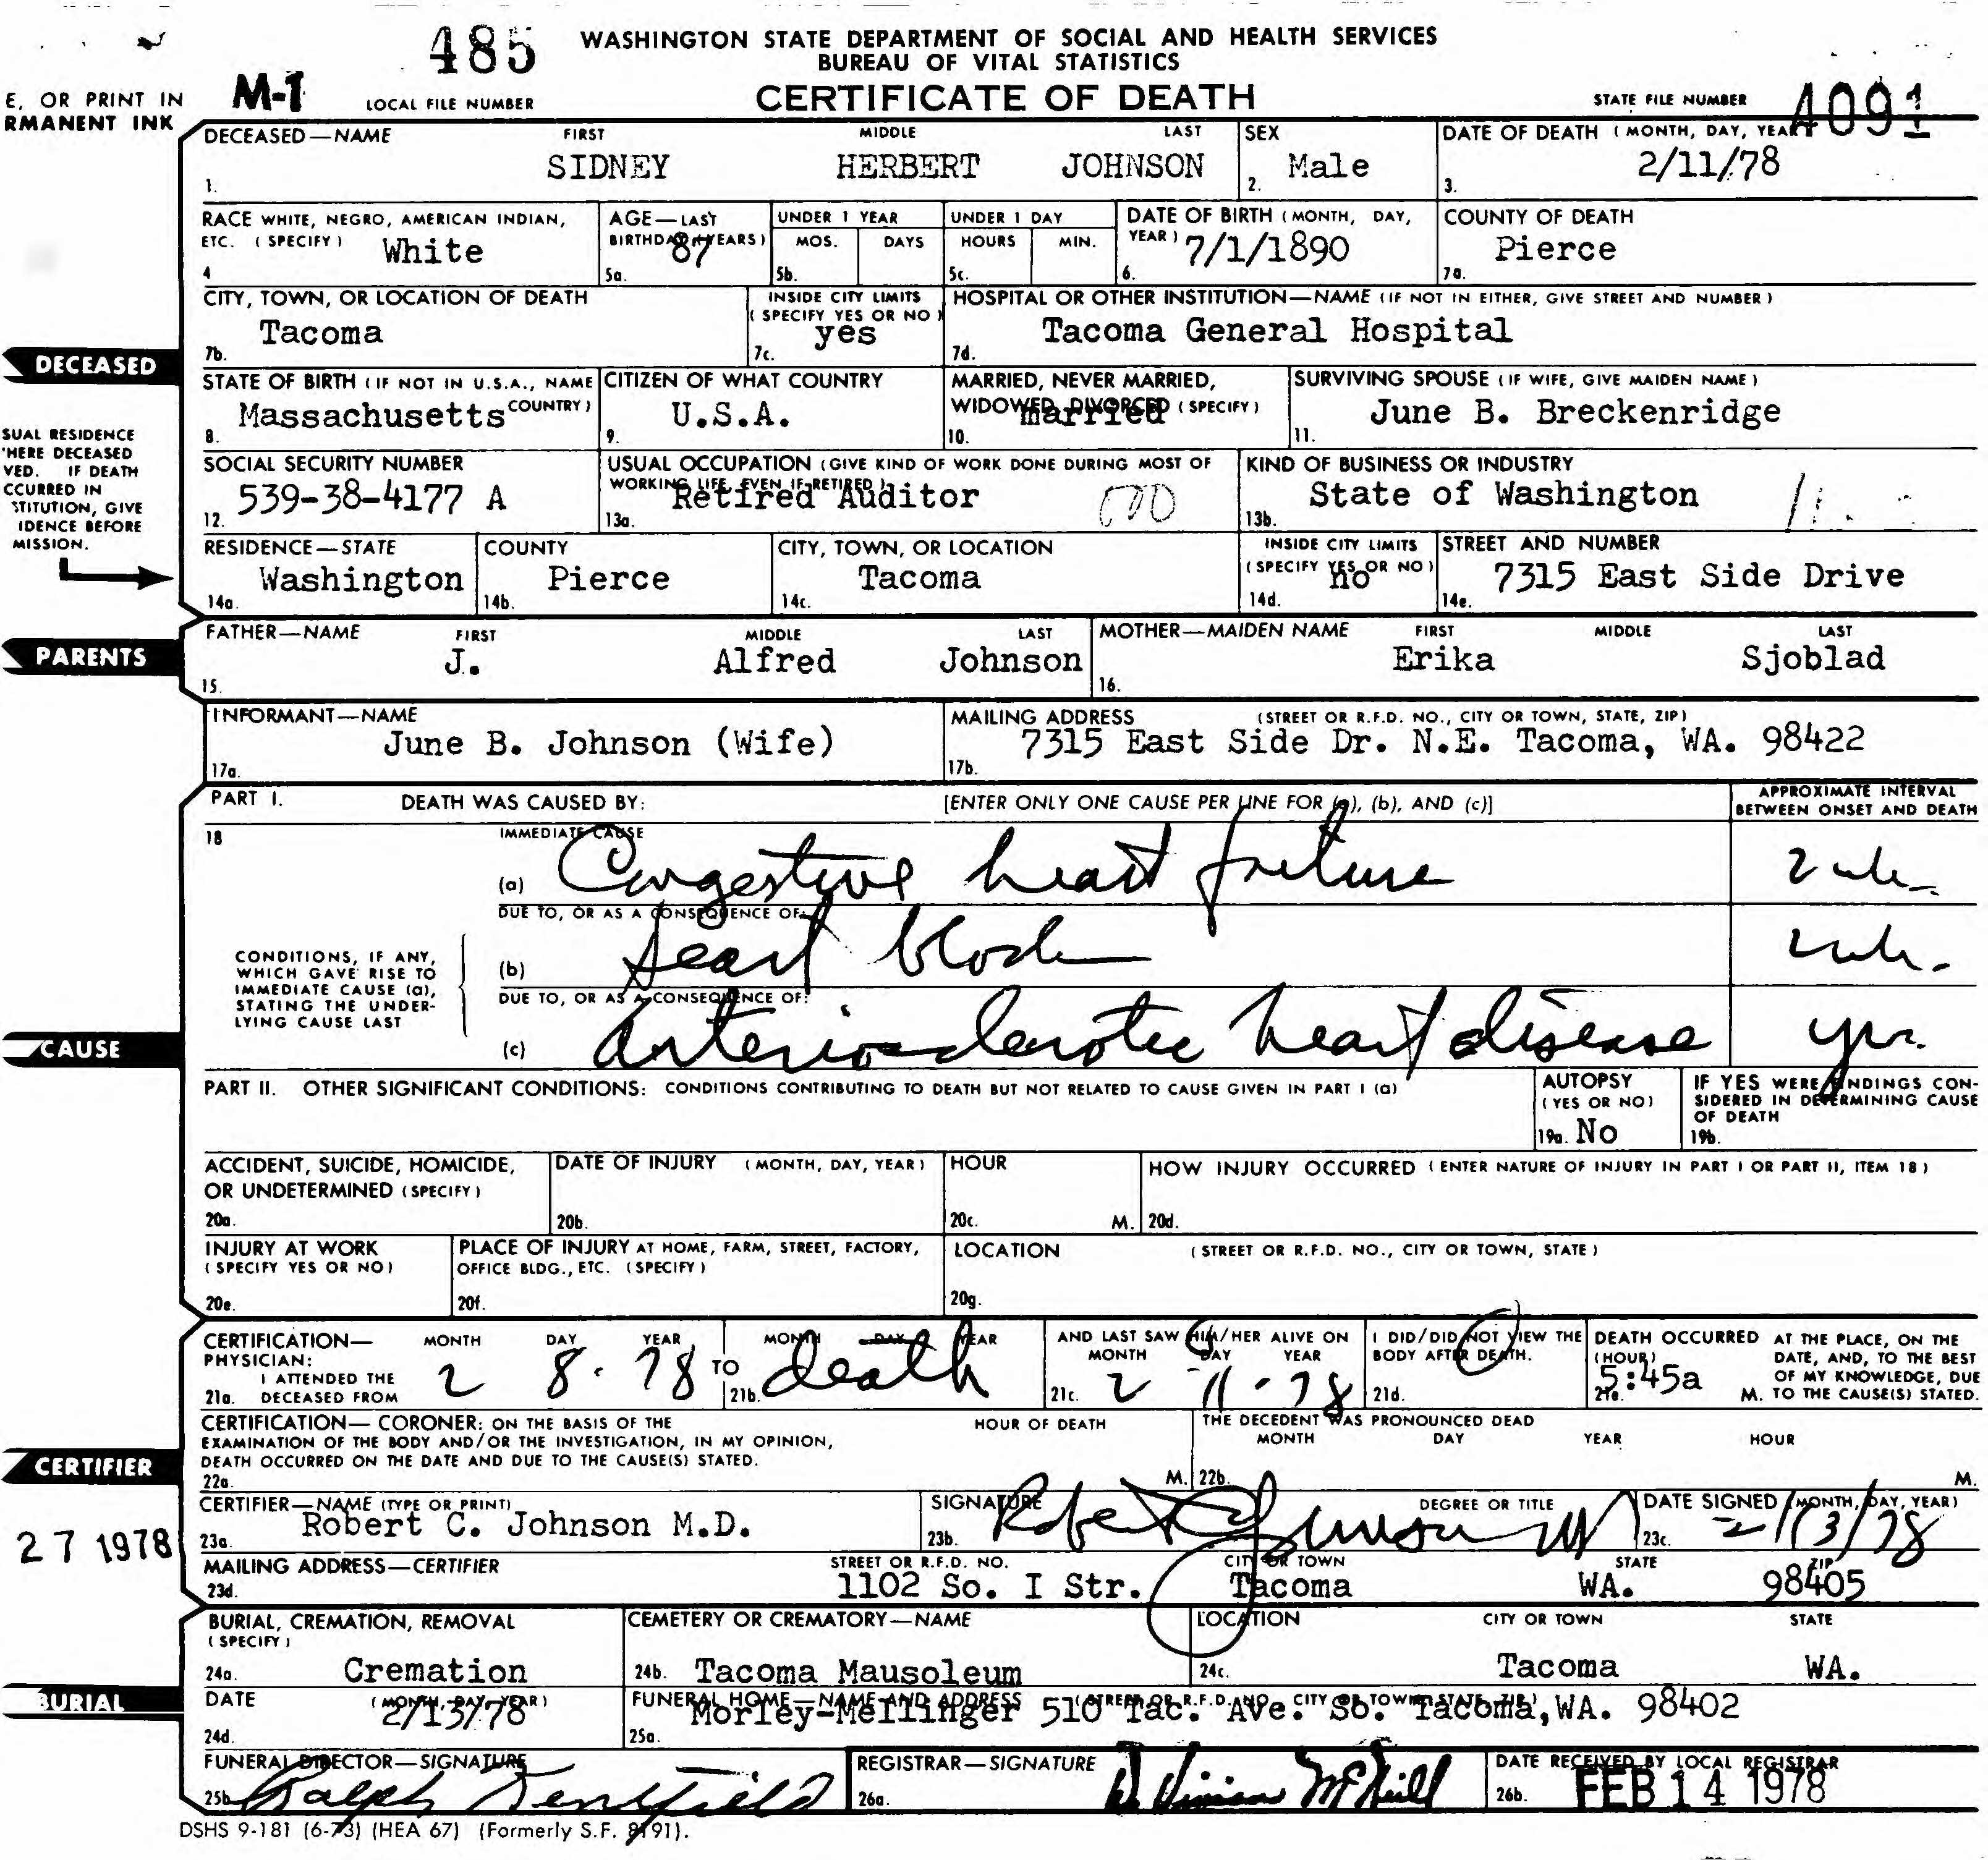 485 WASHINGTON STATE DEPARTMENT OF SOCIAL AND HEALTH SERVICES
BUREAU OF VITAL STATISTICS
E, OR PRINT IN M-1 LOCAL FILE NUMBER CERTIFICATE OF DEATH STATE FILE NUMBER 4091
RMANENT INK
DECEASED—NAME FIRST MIDDLE LAST SEX DATE OF DEATH (MONTH, DAY, YEAR)
1. SIDNEY HERBERT JOHNSON 2. Male 3. 2/11/78
RACE WHITE, NEGRO, AMERICAN INDIAN, AGE—LAST UNDER 1 YEAR UNDER 1 DAY DATE OF BIRTH (MONTH, DAY, COUNTY OF DEATH
ETC. (SPECIFY) BIRTHDAY (YEARS) MOS. DAYS HOURS MIN. YEAR)
4 White 5a. 87 5b. 5c. 6. 7/1/1890 7a. Pierce
CITY, TOWN, OR LOCATION OF DEATH INSIDE CITY LIMITS HOSPITAL OR OTHER INSTITUTION—NAME (IF NOT IN EITHER, GIVE STREET AND NUMBER)
(SPECIFY YES OR NO)
7b. Tacoma 7c. yes 7d. Tacoma General Hospital
DECEASED
STATE OF BIRTH (IF NOT IN U.S.A., NAME COUNTRY) CITIZEN OF WHAT COUNTRY MARRIED, NEVER MARRIED, WIDOWED, DIVORCED (SPECIFY) SURVIVING SPOUSE (IF WIFE, GIVE MAIDEN NAME)
8. Massachusetts 9. U.S.A. 10. married 11. June B. Breckenridge
SUAL RESIDENCE
HERE DECEASED
VED. IF DEATH
CCURRED IN
STITUTION, GIVE
IDENCE BEFORE
MISSION.
SOCIAL SECURITY NUMBER USUAL OCCUPATION (GIVE KIND OF WORK DONE DURING MOST OF WORKING LIFE, EVEN IF RETIRED) KIND OF BUSINESS OR INDUSTRY
12. 539-38-4177 A 13a. Retired Auditor 13b. State of Washington
RESIDENCE—STATE COUNTY CITY, TOWN, OR LOCATION INSIDE CITY LIMITS (SPECIFY YES OR NO) STREET AND NUMBER
14a. Washington 14b. Pierce 14c. Tacoma 14d. no 14e. 7315 East Side Drive
PARENTS
FATHER—NAME FIRST MIDDLE LAST MOTHER—MAIDEN NAME FIRST MIDDLE LAST
15. J. Alfred Johnson 16. Erika Sjoblad
INFORMANT—NAME MAILING ADDRESS (STREET OR R.F.D. NO., CITY OR TOWN, STATE, ZIP)
17a. June B. Johnson (Wife) 17b. 7315 East Side Dr. N.E. Tacoma, WA. 98422
PART I. DEATH WAS CAUSED BY: [ENTER ONLY ONE CAUSE PER LINE FOR (a), (b), AND (c)] APPROXIMATE INTERVAL BETWEEN ONSET AND DEATH
18 IMMEDIATE CAUSE
(a) Congestive heart failure
DUE TO, OR AS A CONSEQUENCE OF:
CONDITIONS, IF ANY,
WHICH GAVE RISE TO
IMMEDIATE CAUSE (a),
STATING THE UNDER-
LYING CAUSE LAST
(b) heart block
DUE TO, OR AS A CONSEQUENCE OF:
CAUSE
(c) arteriosclerotic heart disease yrs.
PART II. OTHER SIGNIFICANT CONDITIONS: CONDITIONS CONTRIBUTING TO DEATH BUT NOT RELATED TO CAUSE GIVEN IN PART I (a) AUTOPSY (YES OR NO) IF YES WERE FINDINGS CONSIDERED IN DETERMINING CAUSE OF DEATH
19a. No 19b.
ACCIDENT, SUICIDE, HOMICIDE, OR UNDETERMINED (SPECIFY) DATE OF INJURY (MONTH, DAY, YEAR) HOUR HOW INJURY OCCURRED (ENTER NATURE OF INJURY IN PART I OR PART II, ITEM 18)
20a. 20b. 20c. M. 20d.
INJURY AT WORK (SPECIFY YES OR NO) PLACE OF INJURY AT HOME, FARM, STREET, FACTORY, OFFICE BLDG., ETC. (SPECIFY) LOCATION (STREET OR R.F.D. NO., CITY OR TOWN, STATE)
20e. 20f. 20g.
CERTIFICATION—PHYSICIAN: I ATTENDED THE DECEASED FROM MONTH DAY YEAR TO MONTH DAY YEAR AND LAST SAW HIM/HER ALIVE ON MONTH DAY YEAR I DID/DID NOT VIEW THE BODY AFTER DEATH. DEATH OCCURRED (HOUR) AT THE PLACE, ON THE DATE, AND, TO THE BEST OF MY KNOWLEDGE, DUE TO THE CAUSE(S) STATED.
21a. 2 8-78 21b. death 21c. 2 11-78 21d. 21e. 5:45a M.
CERTIFICATION—CORONER: ON THE BASIS OF THE HOUR OF DEATH THE DECEDENT WAS PRONOUNCED DEAD
EXAMINATION OF THE BODY AND/OR THE INVESTIGATION, IN MY OPINION, MONTH DAY YEAR HOUR
DEATH OCCURRED ON THE DATE AND DUE TO THE CAUSE(S) STATED.
CERTIFIER
22a. M. 22b. M.
CERTIFIER—NAME (TYPE OR PRINT) SIGNATURE DEGREE OR TITLE DATE SIGNED (MONTH, DAY, YEAR)
27 1978 23a. Robert C. Johnson M.D. 23b. Robert C Johnson MD 23c. 2/13/78
MAILING ADDRESS—CERTIFIER STREET OR R.F.D. NO. CITY OR TOWN STATE ZIP
23d. 1102 So. I Str. Tacoma WA. 98405
BURIAL, CREMATION, REMOVAL (SPECIFY) CEMETERY OR CREMATORY—NAME LOCATION CITY OR TOWN STATE
24a. Cremation 24b. Tacoma Mausoleum 24c. Tacoma WA.
BURIAL
DATE (MONTH, DAY, YEAR) FUNERAL HOME—NAME AND ADDRESS (STREET OR R.F.D. NO., CITY OR TOWN, STATE, ZIP)
24d. 2/13/78 25a. Morley-Mellinger 510 Tac. Ave. So. Tacoma, WA. 98402
FUNERAL DIRECTOR—SIGNATURE REGISTRAR—SIGNATURE DATE RECEIVED BY LOCAL REGISTRAR
25b. Ralph 26a. 26b. FEB 14 1978
DSHS 9-181 (6-73) (HEA 67) (Formerly S.F. 8191).